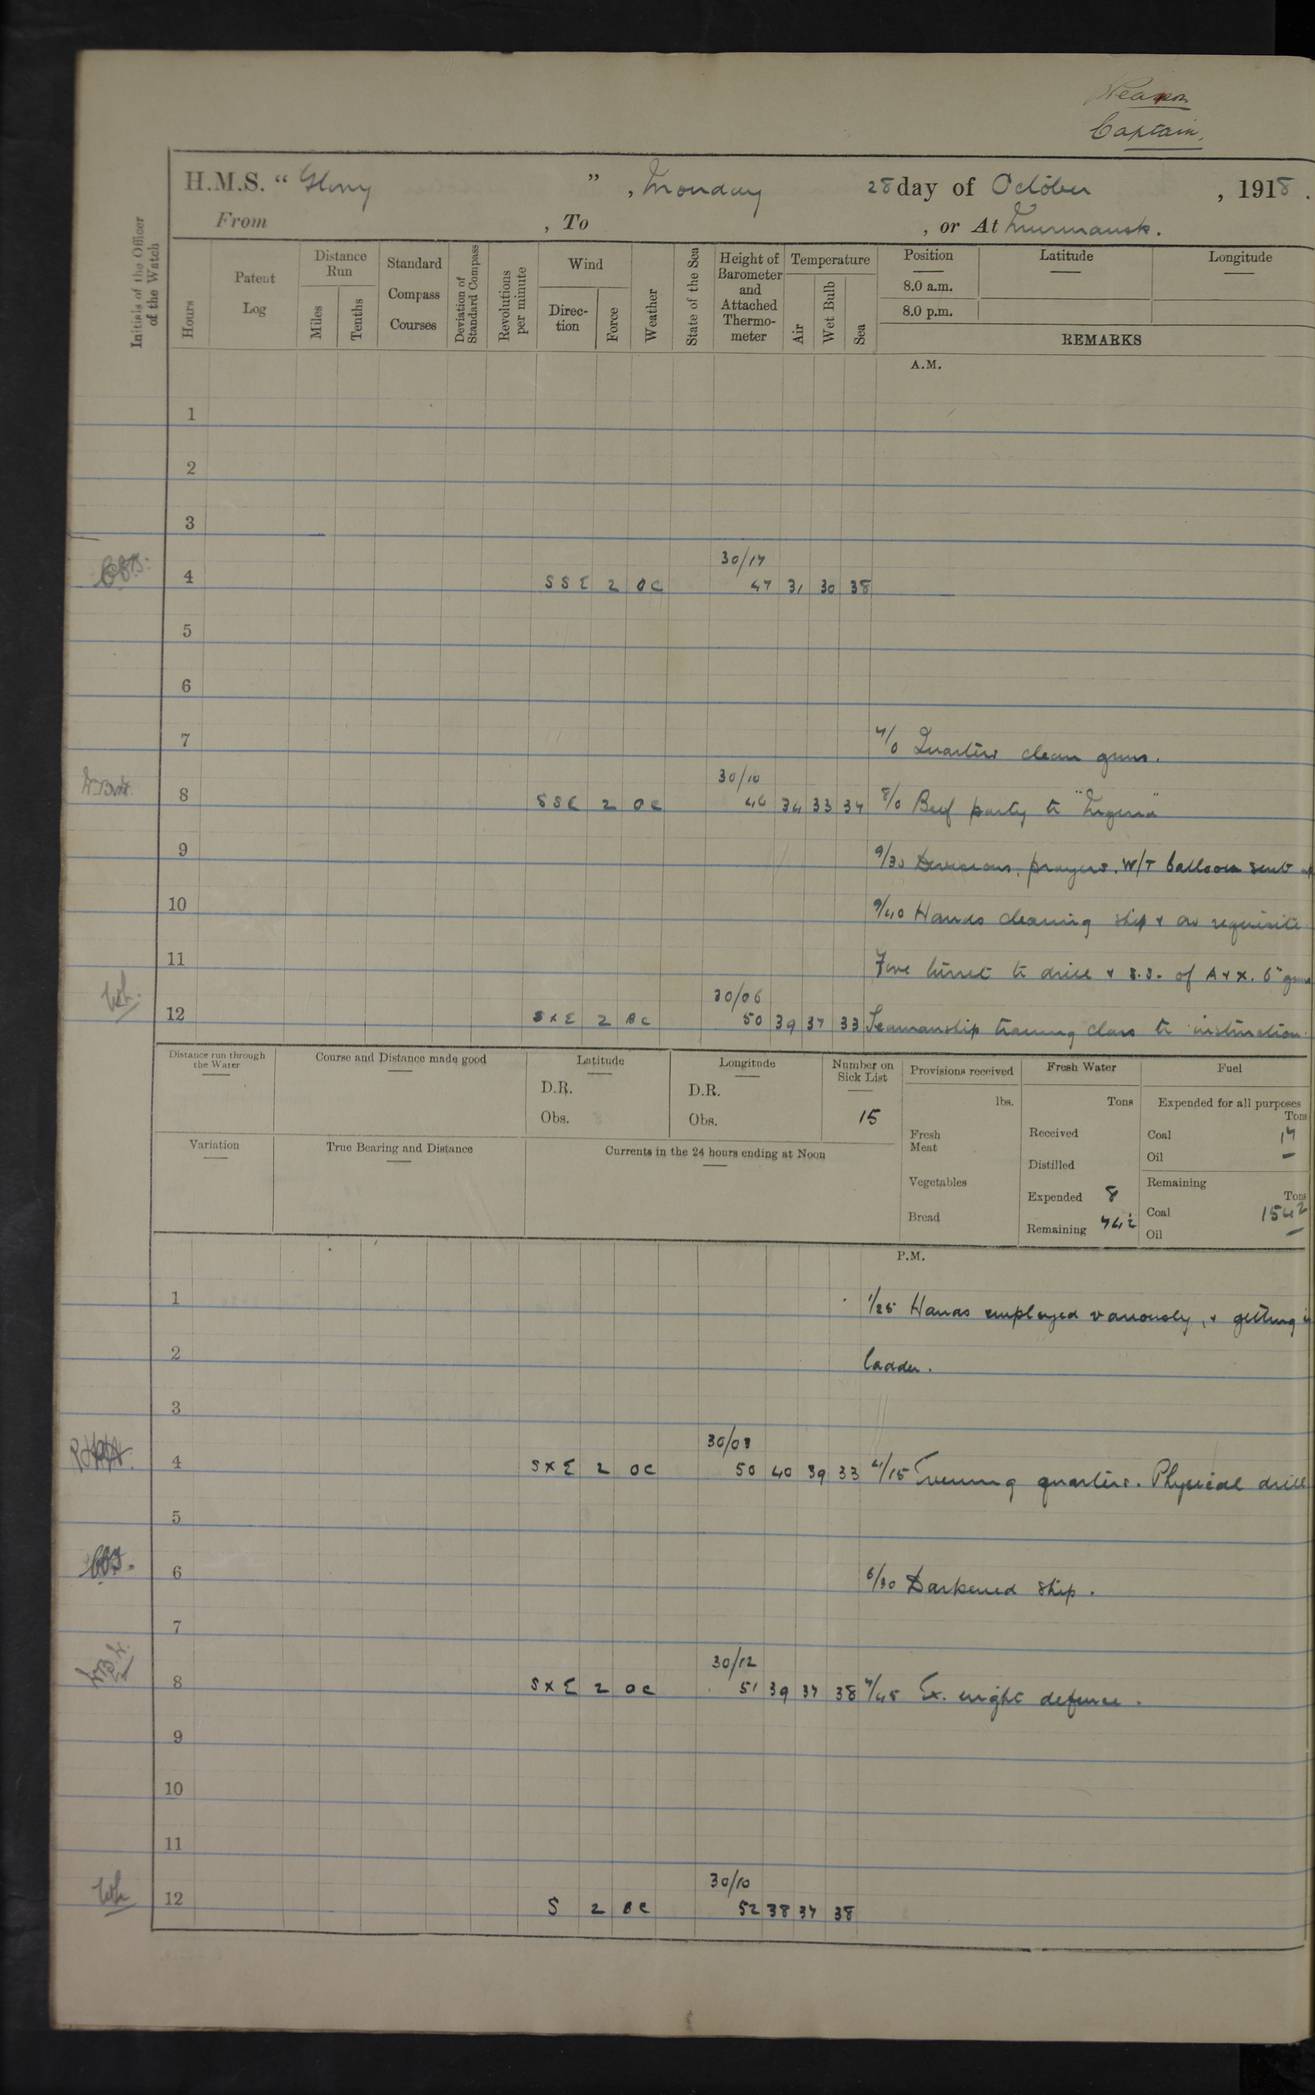 Captain.
H.M.S. "Glory", Monday 28 day of October, 1918.
From , To , or At Murmansk.
Initials of the Officer of the Watch
Hours
Patent Log
Distance Run
Miles
Tenths
Standard Compass Courses
Deviation of Standard Compass
Revolutions per minute
Wind
Direction
Force
Weather
State of the Sea
Height of Barometer and Attached Thermometer
Temperature
Air
Wet Bulb
Sea
Position
Latitude
Longitude
8.0 a.m.
8.0 p.m.
REMARKS
A.M.
1
2
3
30/17
4 SSE 2 OC 47 31 30 38
5
6
7 7/0 Quarters clean guns.
30/10
8 SSE 2 OC 46 34 33 37 8/0 Beef party to "Nigeria"
9 9/30 Divisions, prayers. W/T balloon sent up
10 9/40 Hands cleaning ship & as requisite
11 Fore turret to drill & S.S. of A & X. 6" guns
30/06
12 SXE 2 BC 50 39 37 33 Seamanship training class to instruction.
Distance run through the Water
Course and Distance made good
Latitude
D.R.
Obs.
Longitude
D.R.
Obs.
Number on Sick List
15
Provisions received
lbs.
Fresh Meat
Vegetables
Bread
Fresh Water
Tons
Received
Distilled
Expended 8
Remaining
Fuel
Expended for all purposes
Tons
Coal 17
Oil –
Remaining
Tons
Coal 1542
Oil –
Variation
True Bearing and Distance
Currents in the 24 hours ending at Noon
P.M.
1 1/25 Hands employed variously, & getting in
2 ladder.
3
30/08
4 SXE 2 OC 50 40 39 33 4/15 Evening quarters. Physical drill
5
6 6/30 Darkened ship.
7
30/12
8 SXE 2 OC 51 39 37 38 7/45 Ex. night defence.
9
10
11
30/10
12 S 2 BC 52 38 37 38